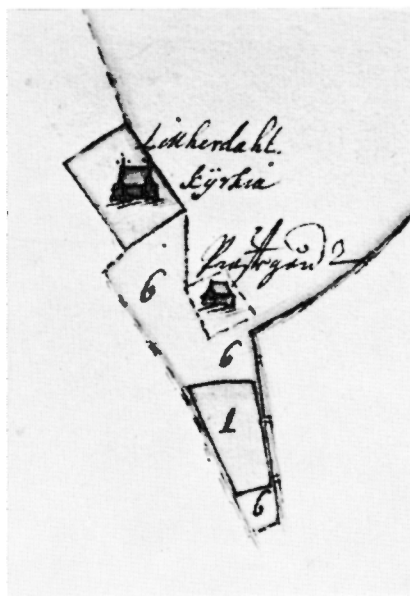 Likherdahl.
kÿrkia
A
Prästgård
6
6
1
6